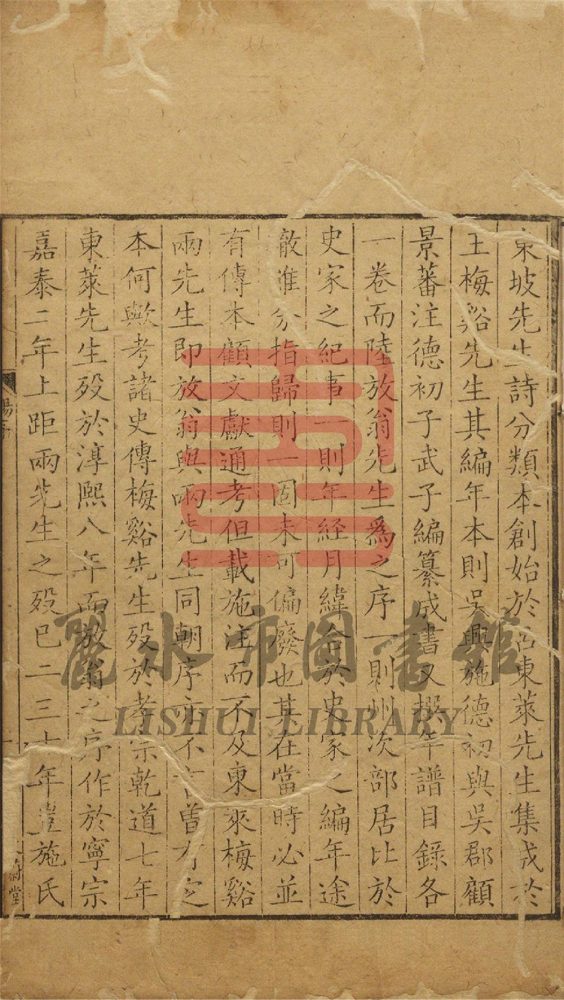 東坡先生詩分類本創始於呂東萊先生集成於
王梅谿先生其編年本則吳興施德初與吳郡顧
景蕃注德初子武子編纂成書又撰年譜目錄各
一卷而陸放翁先生為之序一則州次部居比於
史家之紀事一則年經月緯合於史家之編年途
徹雖分指歸則一固未可偏廢也其在當時必並
有傳本顧文獻通考但載施注而不及東萊梅谿
兩先生即放翁與兩先生同朝序亦不言曾有定
本何歟考諸史傳梅谿先生歿於孝宗乾道七年
東萊先生歿於淳熙八年而放翁之序作於寧宗
嘉泰二年上距兩先生之歿已二三十年豈施氏
麗水市圖書館
LISHUI LIBRARY